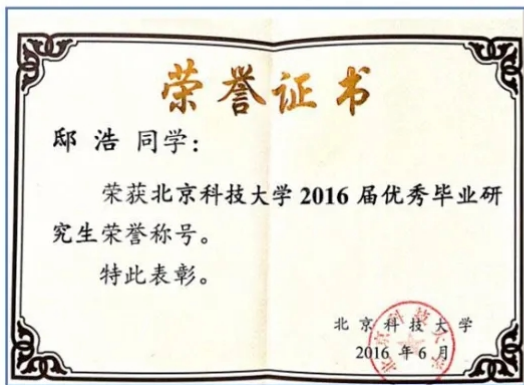 荣誉证书
邸浩同学：
荣获北京科技大学2016届优秀毕业研
究生荣誉称号。
特此表彰。
北京科技大学
2016年6月
北京科技大学